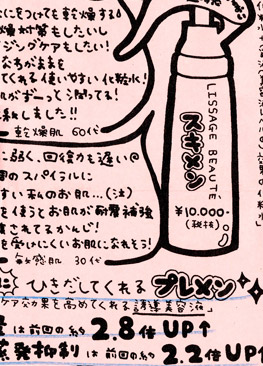 にをつけても乾燥する
燥対策もしたいし
ジングケアもしたい!
ながままを
てくれる使いやすい化粧水!
肌がずーっと潤ってる!
求しました!!
乾燥肌 60代
に弱く、回復力も遅い@
のスパイラルに
すい私のお肌…(泣)
を使うとお肌が耐層補強
されてるかんじ!
を受けにくいお肌になれそう!
敏感肌 30代
LISSAGE BEAUTE
スキメン
¥10.000-
(税抜)
ひきだしてくれる プレメン
ケア効果を高めてくれる誘導美容液」
量は前回の約2.8倍UP↑
蒸発抑制は前回の約2.2倍UP↑